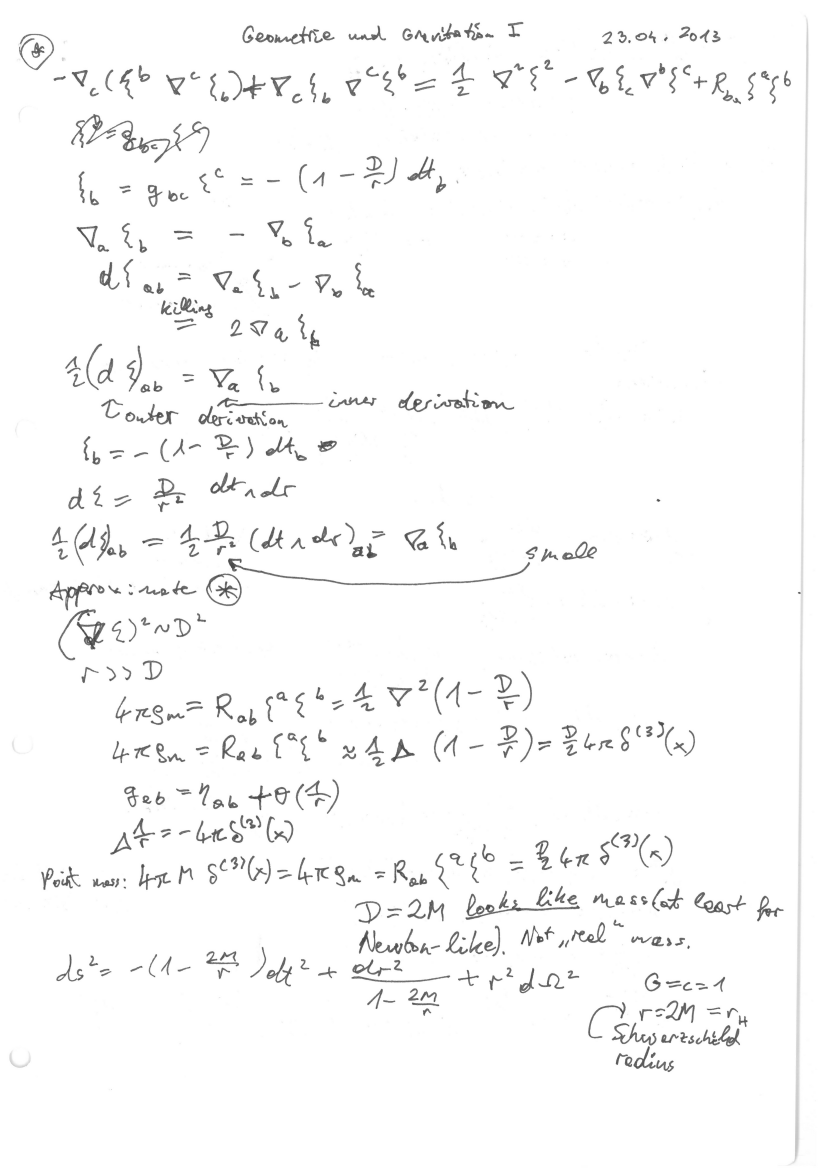 Geometrie und Gravitation I 23.04.2013
⊛ -∇_c(ξ^b ∇^c ξ_b) + ∇_c ξ_b ∇^c ξ^b = 1/2 ∇²ξ² - ∇_b ξ_c ∇^b ξ^c + R_ba ξ^a ξ^b
ξ_b = g_bc ξ^c = - (1 - D/r) dt_b.
∇_a ξ_b = - ∇_b ξ_a
dξ_ab = ∇_a ξ_b - ∇_b ξ_a
killing
= 2 ∇_a ξ_b
1/2 (dξ)_ab = ∇_a ξ_b
↑ outer derivation ← inner derivation
ξ_b = - (1 - D/r) dt_b
dξ = D/r² dt ∧ dr
1/2 (dξ)_ab = 1/2 D/r² (dt ∧ dr)_ab = ∇_a ξ_b
small
Approximate ⊛
(∇ξ)² ~ D²
r >> D
4πρ_m = R_ab ξ^a ξ^b = 1/2 ∇² (1 - D/r)
4πρ_m = R_ab ξ^a ξ^b ≈ 1/2 Δ (1 - D/r) = D/2 4π δ^(3)(x)
g_ab = η_ab + O(1/r)
Δ 1/r = -4π δ^(3)(x)
Point mass: 4π M δ^(3)(x) = 4πρ_m = R_ab ξ^a ξ^b = D/2 4π δ^(3)(x)
D = 2M looks like mass (at least for
Newton-like). Not „real" mass.
ds² = -(1 - 2M/r) dt² + dr²/(1 - 2M/r) + r² dΩ²
G=c=1
r=2M = r_H
Schwarzschild
radius